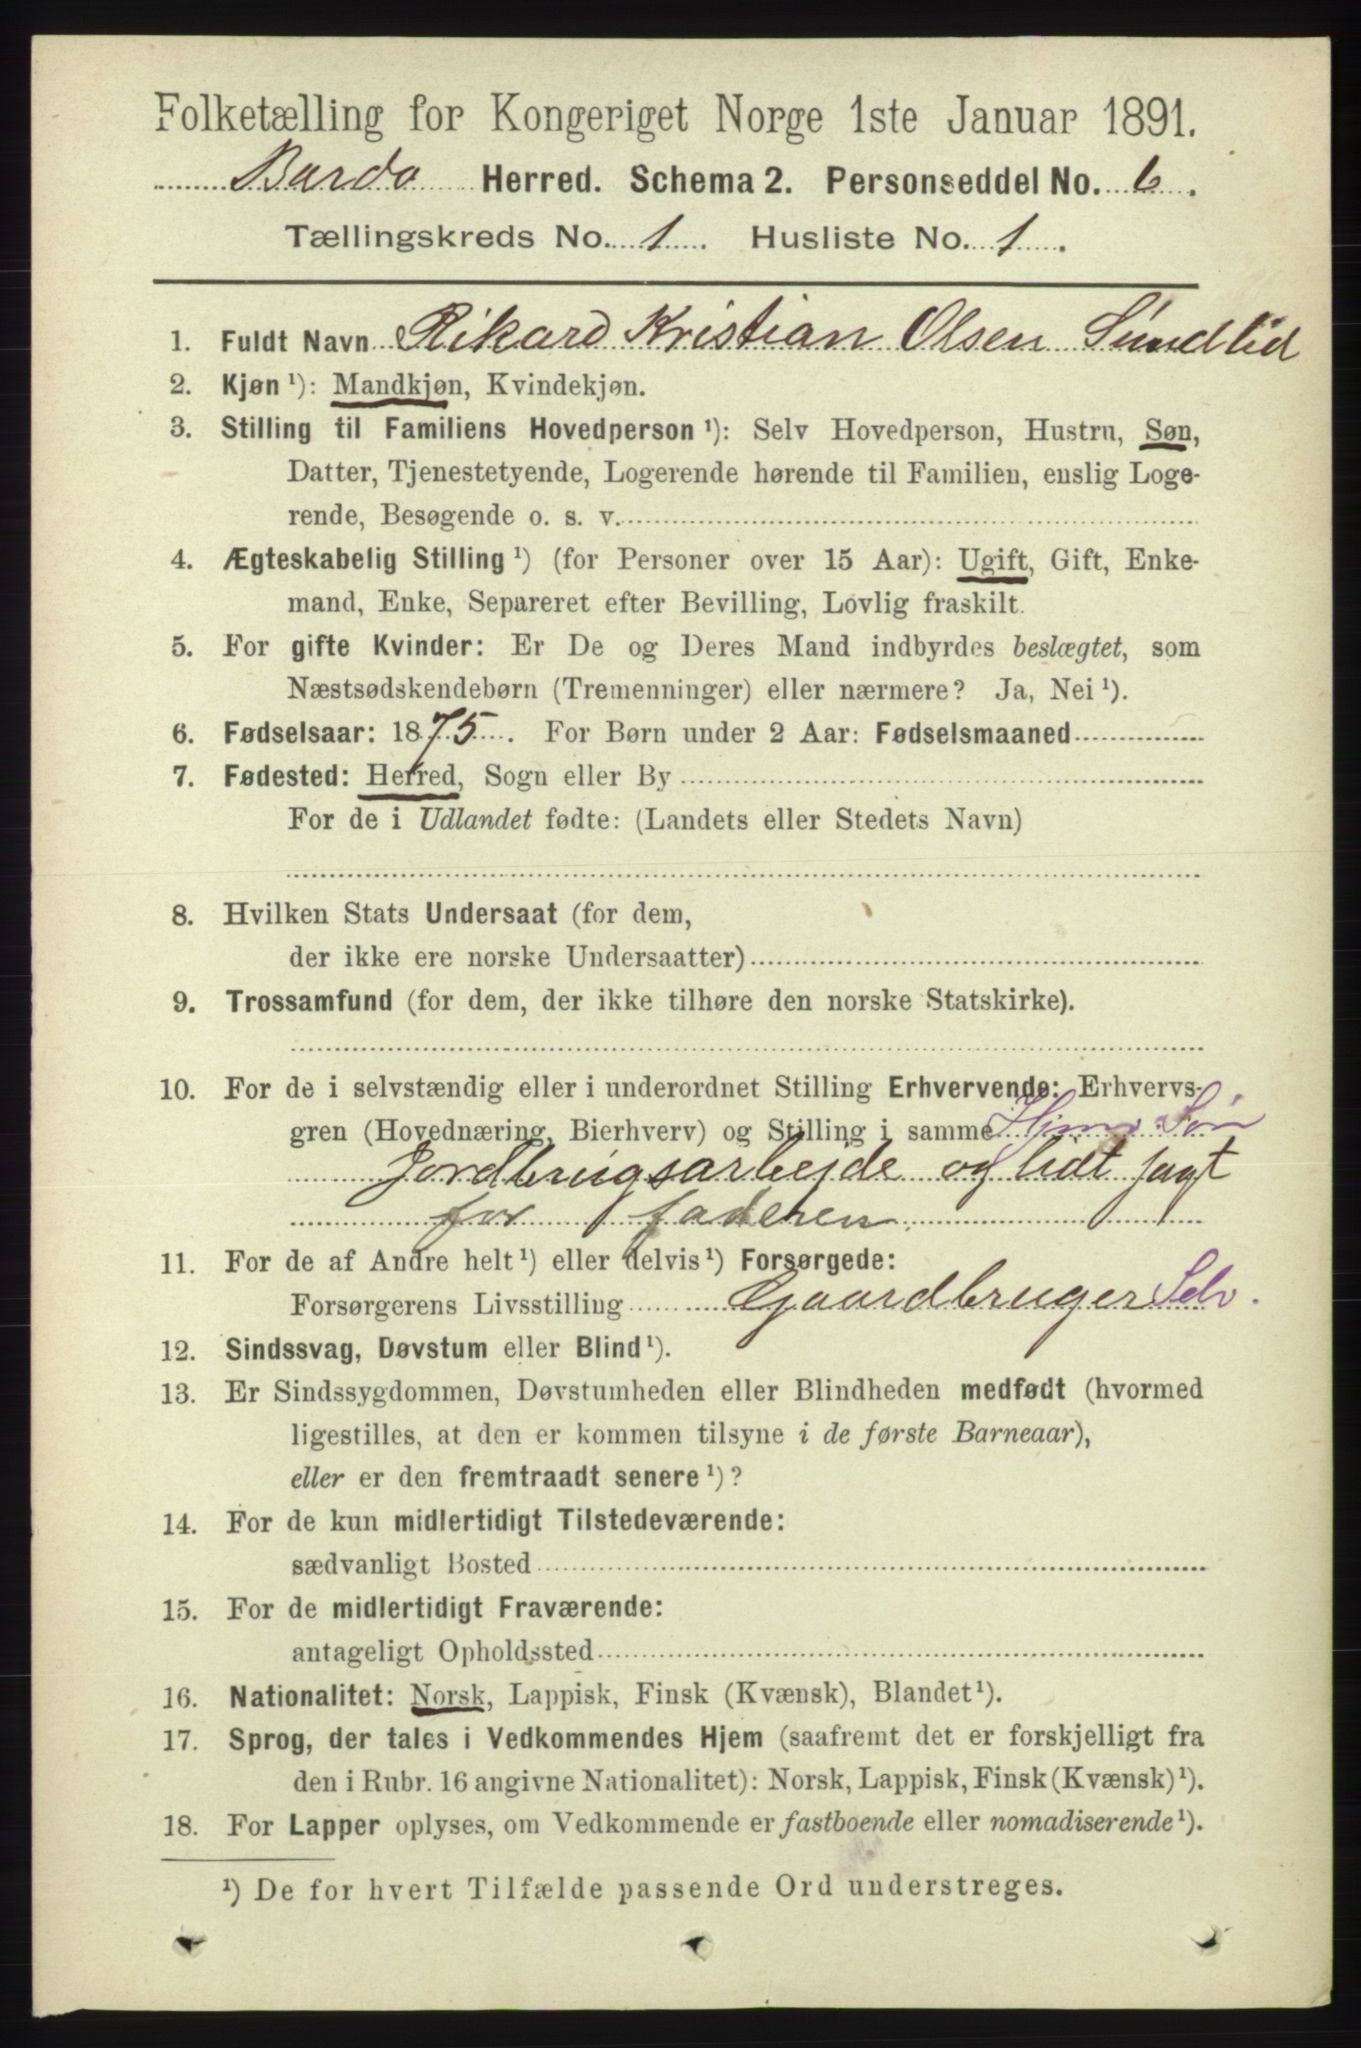 Folketælling for Kongeriget Norge 1ste Januar 1891.
Bardo Herred. Schema 2. Personseddel No. 6.
Tællingskreds No. 1. Husliste No. 1.
1. Fuldt Navn Rikard Kristian Olsen Sundlid
2. Kjøn ¹): Mandkjøn, Kvindekjøn.
3. Stilling til Familiens Hovedperson ¹): Selv Hovedperson, Hustru, Søn,
Datter, Tjenestetyende, Logerende hørende til Familien, enslig Loge-
rende, Besøgende o. s. v.
4. Ægteskabelig Stilling ¹) (for Personer over 15 Aar): Ugift, Gift, Enke-
mand, Enke, Separeret efter Bevilling, Lovlig fraskilt.
5. For gifte Kvinder: Er De og Deres Mand indbyrdes beslægtet, som
Næstsødskendebørn (Tremenninger) eller nærmere? Ja, Nei ¹).
6. Fødselsaar: 1875. For Børn under 2 Aar: Fødselsmaaned
7. Fødested: Herred, Sogn eller By
For de i Udlandet fødte: (Landets eller Stedets Navn)
8. Hvilken Stats Undersaat (for dem,
der ikke ere norske Undersaatter)
9. Trossamfund (for dem, der ikke tilhøre den norske Statskirke).
10. For de i selvstændig eller i underordnet Stilling Erhvervende: Erhvervs-
gren (Hovednæring, Bierhverv) og Stilling i samme Hjmv. Søn
Jordbrugsarbejde og lidt jagt
for faderen.
11. For de af Andre helt ¹) eller delvis ¹) Forsørgede:
Forsørgerens Livsstilling Gaardbruger Selv.
12. Sindssvag, Døvstum eller Blind ¹).
13. Er Sindssygdommen, Døvstumheden eller Blindheden medfødt (hvormed
ligestilles, at den er kommen tilsyne i de første Barneaar),
eller er den fremtraadt senere ¹)?
14. For de kun midlertidigt Tilstedeværende:
sædvanligt Bosted
15. For de midlertidigt Fraværende:
antageligt Opholdssted
16. Nationalitet: Norsk, Lappisk, Finsk (Kvænsk), Blandet ¹).
17. Sprog, der tales i Vedkommendes Hjem (saafremt det er forskjelligt fra
den i Rubr. 16 angivne Nationalitet): Norsk, Lappisk, Finsk (Kvænsk) ¹).
18. For Lapper oplyses, om Vedkommende er fastboende eller nomadiserende ¹).
¹) De for hvert Tilfælde passende Ord understreges.